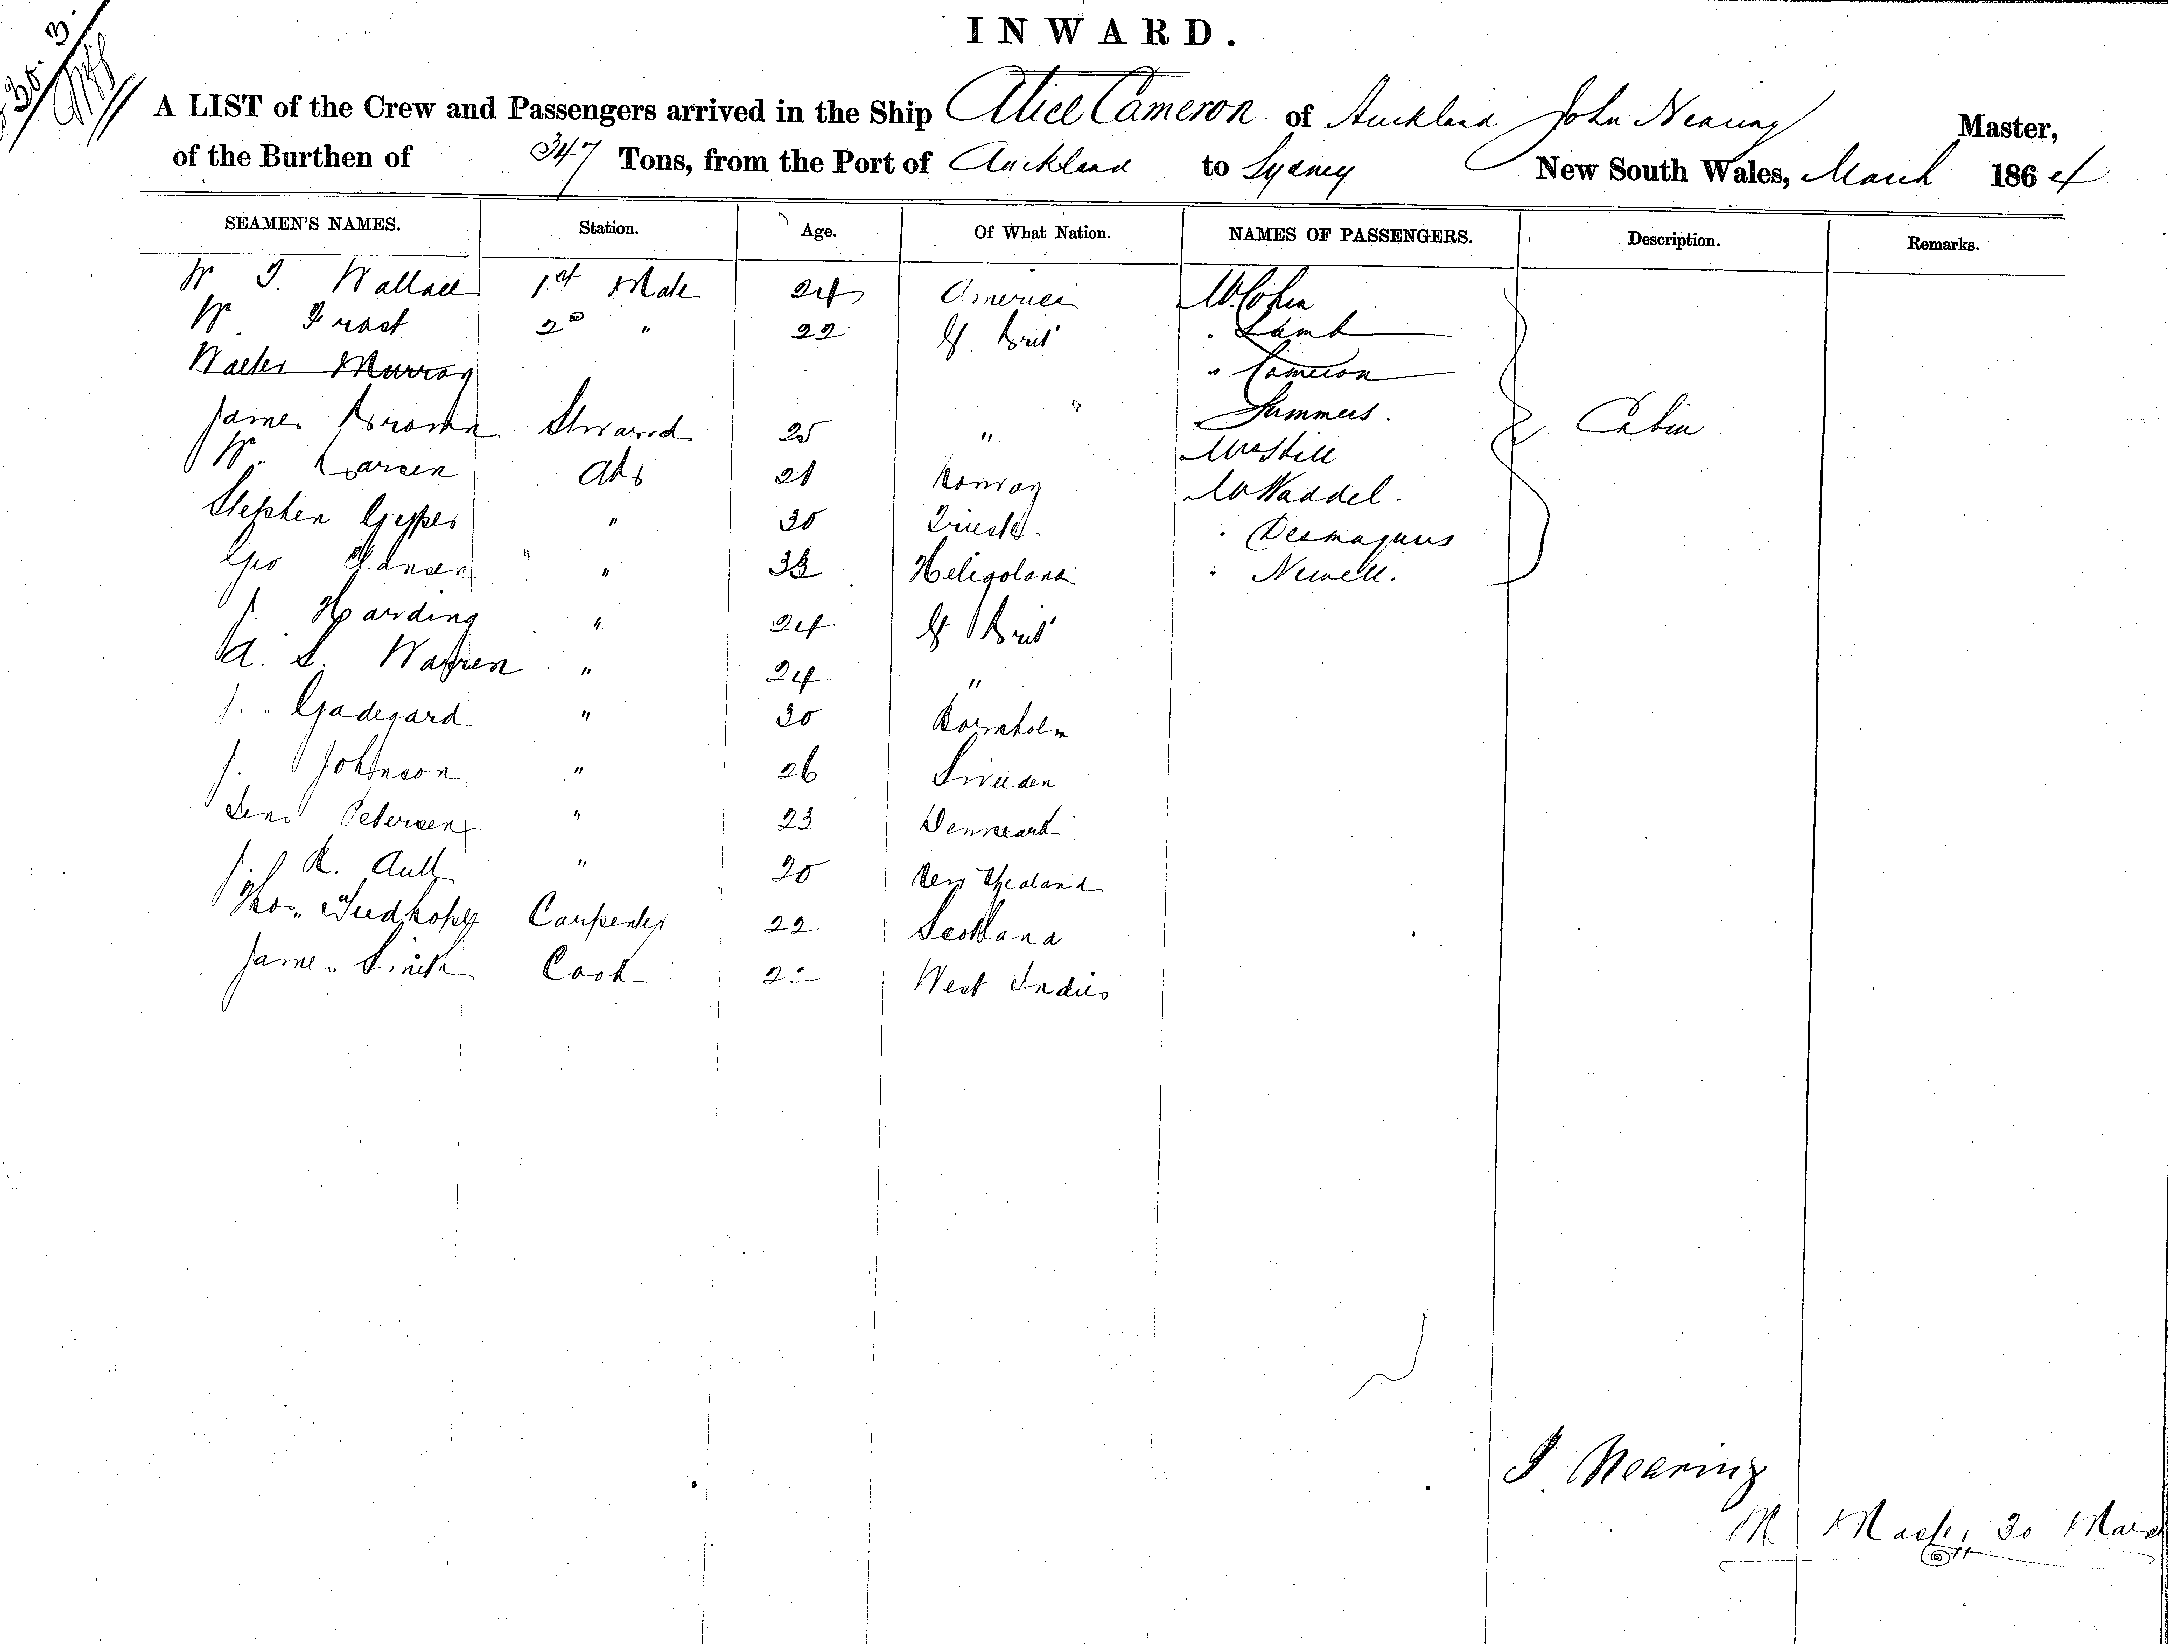 30. 3.
INWARD.
A LIST of the Crew and Passengers arrived in the Ship Alice Cameron of Auckland John Nearing Master,
of the Burthen of 347 Tons, from the Port of Auckland to Sydney New South Wales, March 1864
SEAMEN'S NAMES. Station. Age. Of What Nation. NAMES OF PASSENGERS. Description. Remarks.
W T. Wallace 1st Mate 24 America Mr Cohen
W. Frost 2nd " 22 G. Brit " Lamb
Walter Murray " Cameron
James Brown Steward 25 " " Summers. Cabin
W. Larsen Abs 21 Norway Mrs Still
Stephen " 30 Trieste. Mr Waddel.
Geo Hansen " " 33 Heligoland " Desmaques
J. Harding " 24 G Brit " Newell.
A. S. Warren " 24 "
J. Gadegard " 30 Bornholm
J. Johnson " 26 Sweden
Jens Petersen " 23 Denmark
J. R. Ault " 20 New Zealand
Thos. Carpenter 22 Scotland
James Smith Cook West Indies
J. Nearing
Master 30 March